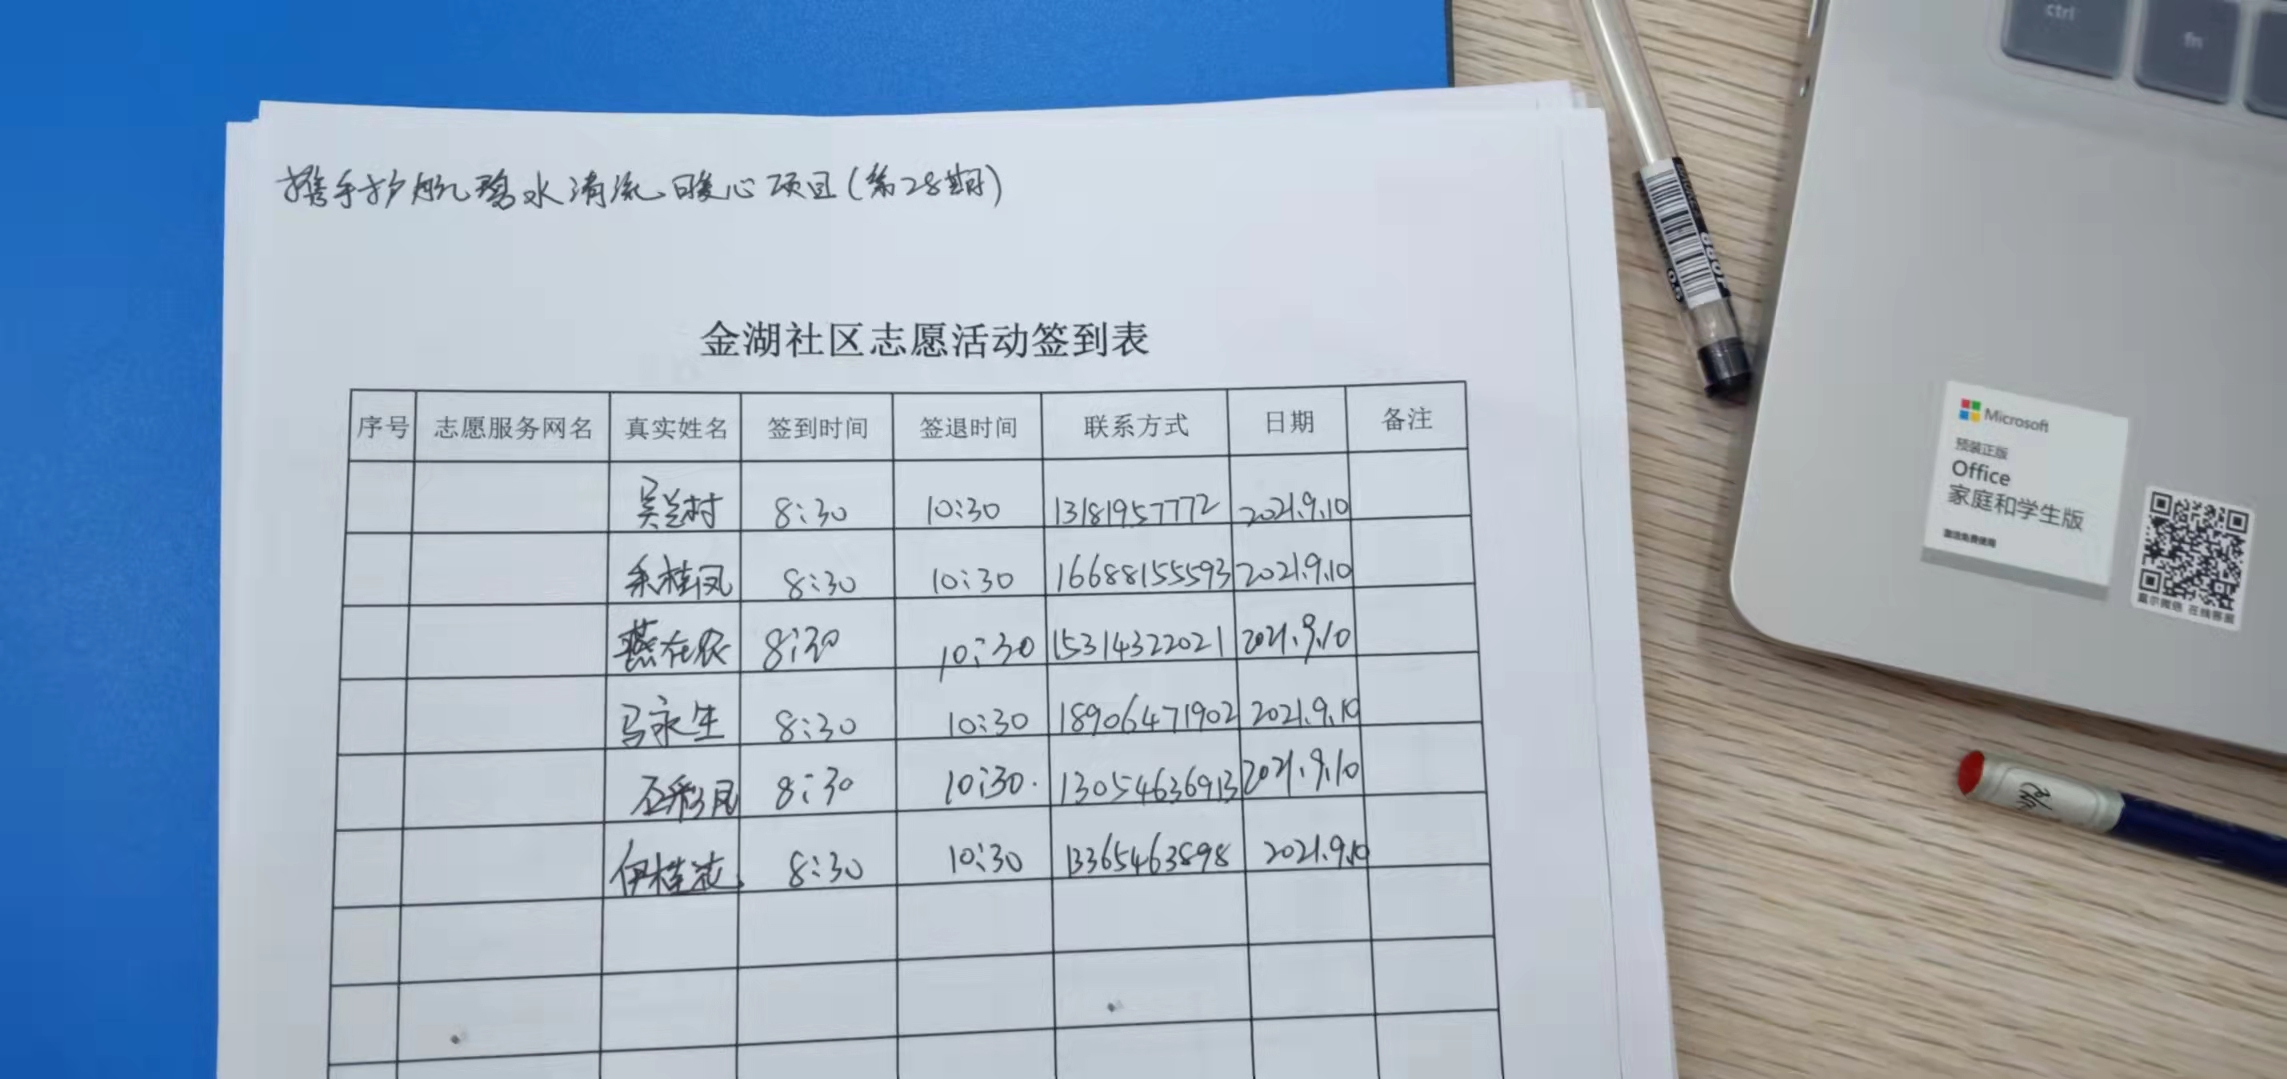 携手护航碧水清流暖心项目(第28期)
金湖社区志愿活动签到表
序号 志愿服务网名 真实姓名 签到时间 签退时间 联系方式 日期 备注
吴兰村 8:30 10:30 13181957772 2021.9.10
桂凤 8:30 10:30 16688155593 2021.9.10
燕在农 8:30 10:30 15314322021 2021.9.10
马永生 8:30 10:30 18906471902 2021.9.10
石彩凤 8:30 10:30. 13054636913 2021.9.10
伊桂 8:30 10:30 13365463898 2021.9.10
ctrl
fn
0.5
Microsoft
预装正版
Office
家庭和学生版
激活免费使用